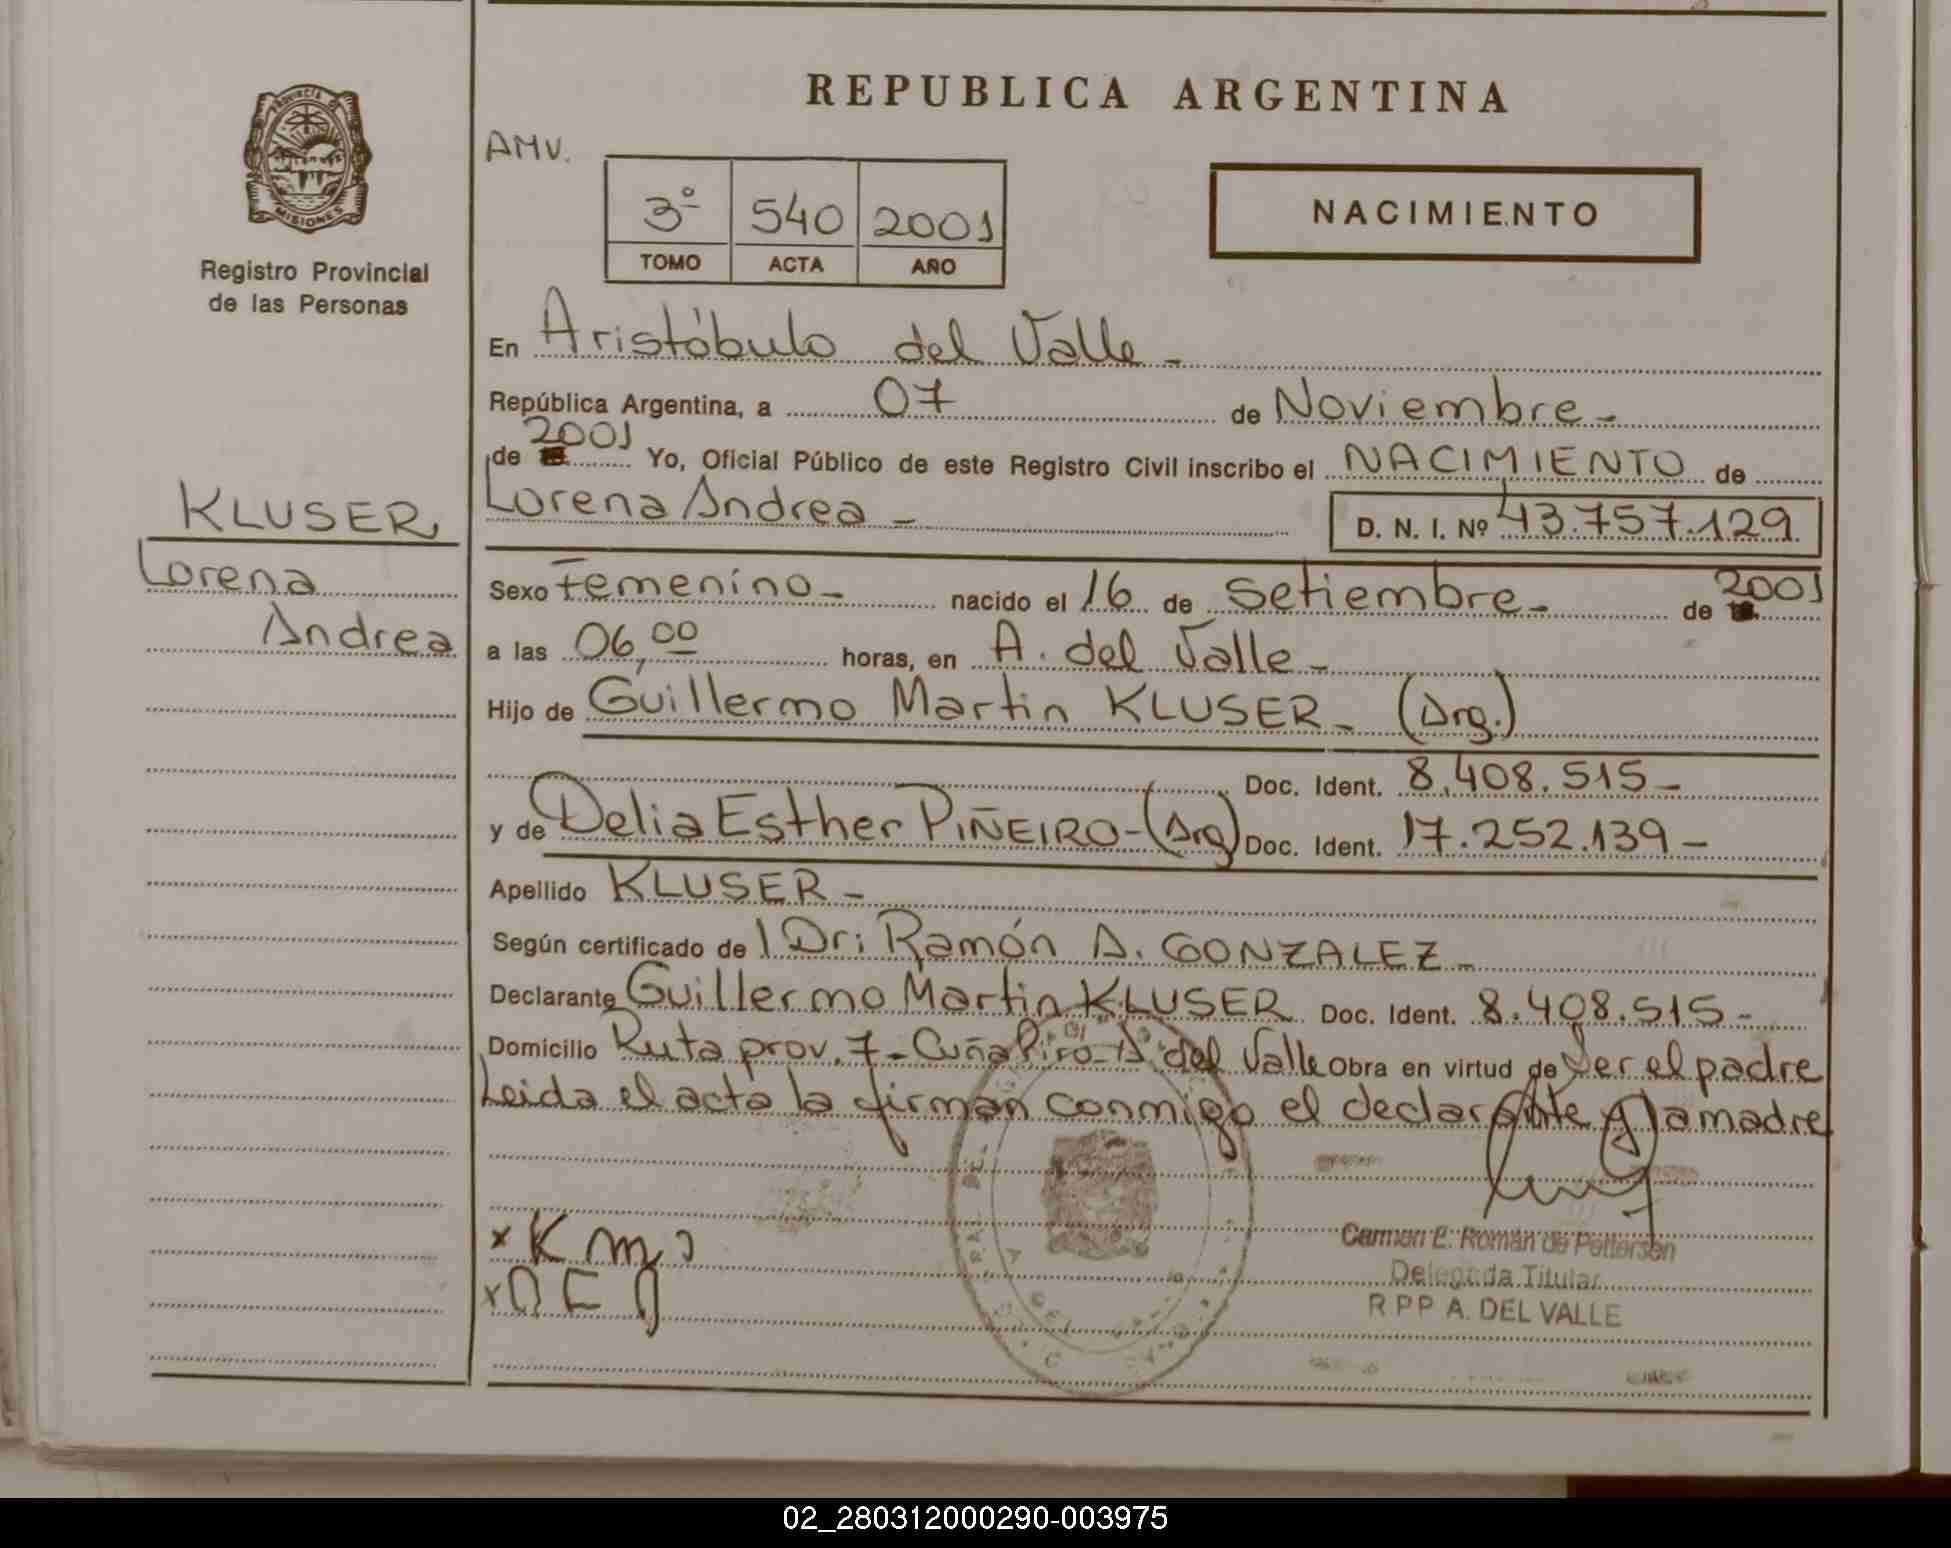 REPUBLICA ARGENTINA
PROVINCIA DE
MISIONES
Registro Provincial
de las Personas
AMV.
3º 540 2001
TOMO ACTA AÑO
NACIMIENTO
En Aristóbulo del Valle-
República Argentina, a 07 de Noviembre-
de 2001 Yo, Oficial Público de este Registro Civil inscribo el NACIMIENTO de
Lorena Andrea - D. N. I. Nº 43.757.129
KLUSER
Lorena
Andrea
Sexo Femenino- nacido el 16 de Setiembre- de 2001
a las 06,00 horas, en A. del Valle-
Hijo de Guillermo Martin KLUSER- (Arg.)
Doc. Ident. 8.408.515-
y de Delia Esther PIÑEIRO-(Arg) Doc. Ident. 17.252.139-
Apellido KLUSER-
Según certificado de l Dr: Ramón A. GONZALEZ-
Declarante Guillermo Martin KLUSER Doc. Ident. 8.408.515-
Domicilio Ruta prov. 7- Cuña Piro-A. del Valle Obra en virtud de Ser el padre
Leida el acta la firman conmigo el declarante y la madre
x K m
x D E
Carmen E. Román de Pettersen
Delegada Titular
R P P A. DEL VALLE
02_280312000290-003975